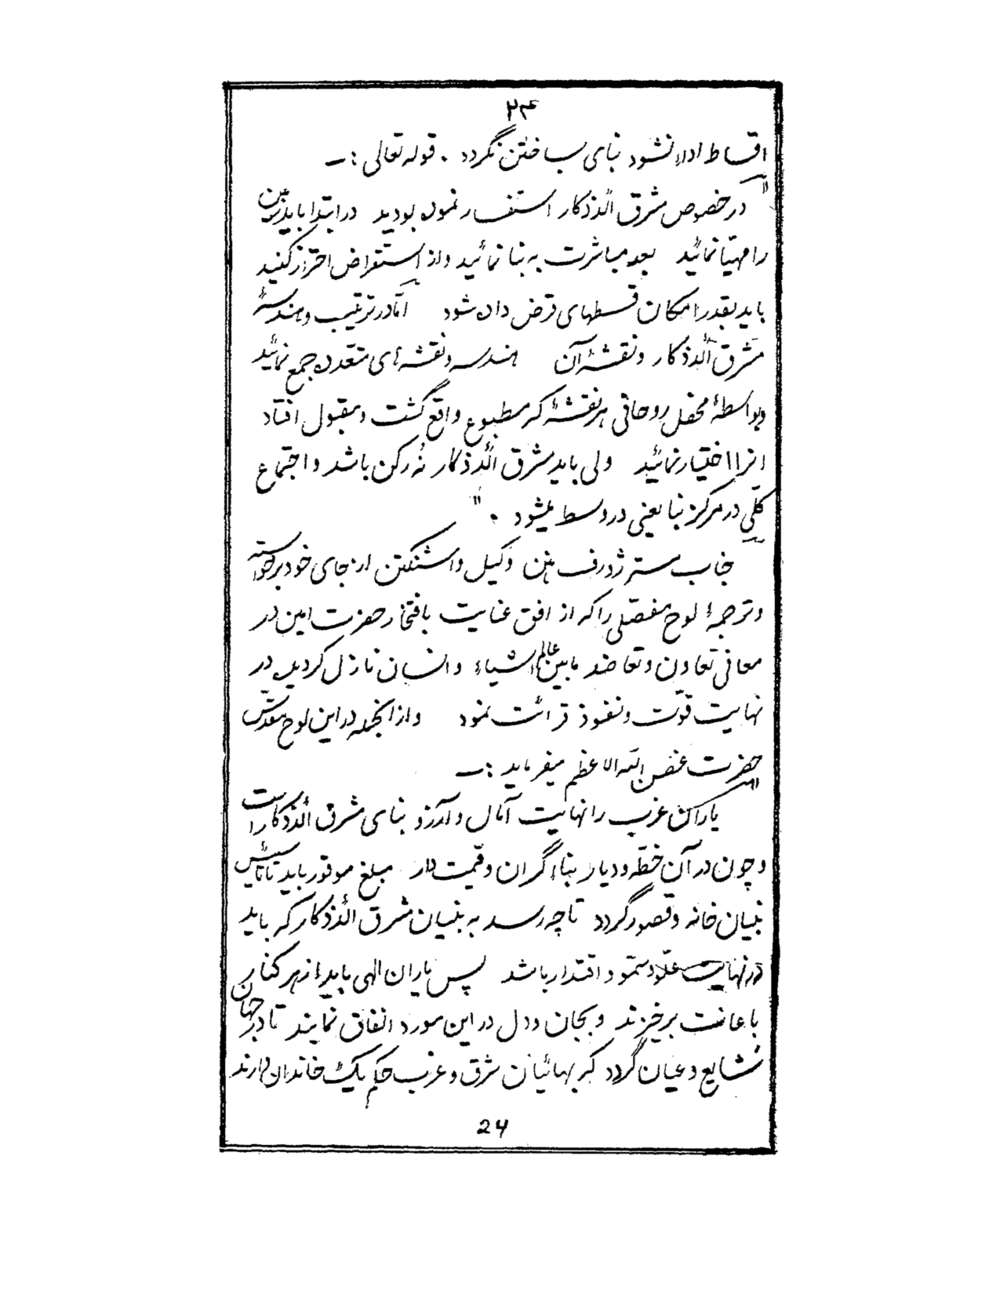 ۲۴
اقساط ادا نشود بنای ساختن نگردد . قوله تعالی :ـ
" در خصوص مشرق الاذکار استفسار نموده بودید در ابتدا باید زمین
را مهیّا نمائید بعد مباشرت به بنا نمائید و از استقراض احتراز کنید
باید بقدر امکان قسطهای قرض داده شود امّا در ترتیب و هندسهٔ
مشرق الاذکار و نقشهٔ آن هندسه و نقشه‌های متعدده جمع نمائید
و بواسطهٔ محفل روحانی هر نقشهٔ که مطبوع واقع گشت و مقبول افتاد
انرا اختیار نمائید ولی باید مشرق الاذکار نُه رکن باشد و اجتماع
کلّی در مرکز بنا یعنی در وسط بشود . "
جناب مستر ژدرف هنن وکیل واشنگتن از جای خود برخواسته
و ترجمهٔ لوح مفصّلی را که از افق عنایت بافتخار حضرت امین در
معانی تعاون و تعاضد مابین عالم اشیاء و انسان نازل گردیده در
نهایت قوّت و نفوذ قرائت نمود و از انجمله در این لوح مقدّس
حضرت غصن الله الاعظم میفرماید :ـ
" یاران غرب را نهایت آمال و آرزو بنای مشرق الاذکار است
و چون در آن خطّه و دیار بناء گران و قیمت دار مبلغ موفور باید تا تأسیس
بنیان خانه و قصور گردد تا چه رسد به بنیان مشرق الاذکار که باید
در نهایت علوّ و سموّ و اقتدار باشد پس یاران الهی باید از هر کنار
باعانت برخیزند و بجان و دل در این مورد انفاق نمایند تا در جهان
شایع و عیان گردد که بهائیان شرق و غرب حکم یک خاندان دارند
24